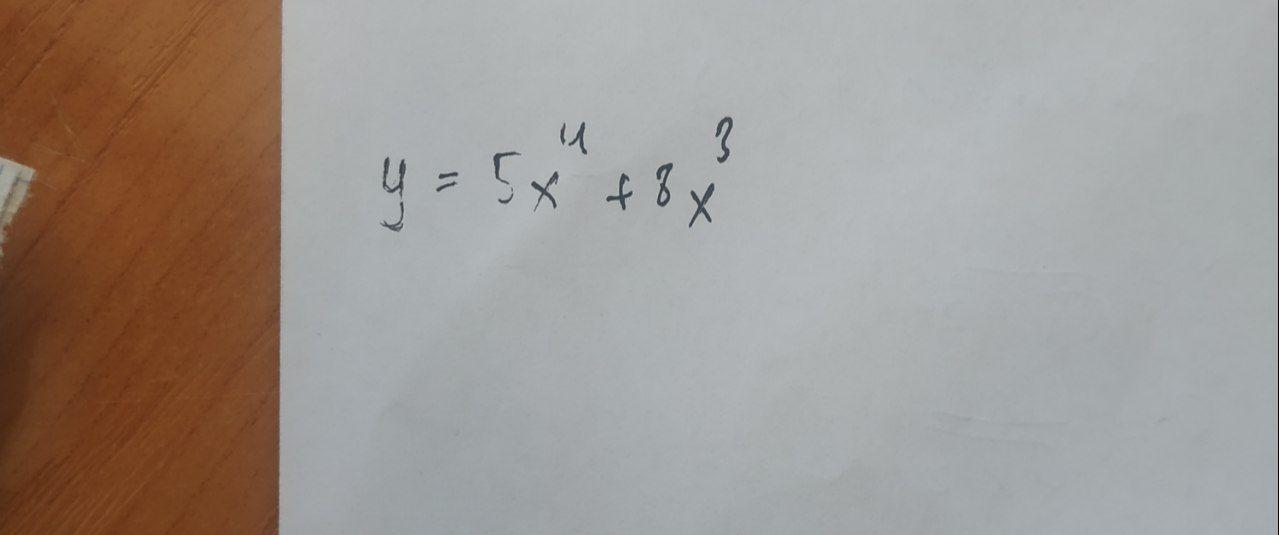 y = 5x⁴ + 8x³